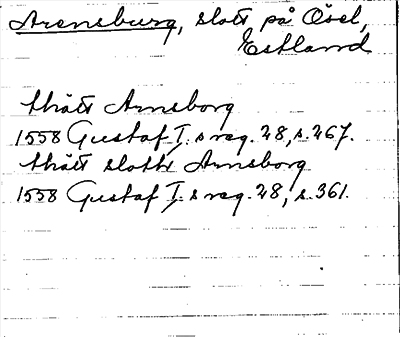 Arensburg, slott på Ösel,
Estland
thätt Arnsborg
1558 Gustaf I.s reg. 28, s. 267.
thätt slotht Arnsborg
1558 Gustaf I.s reg. 28, s. 361.